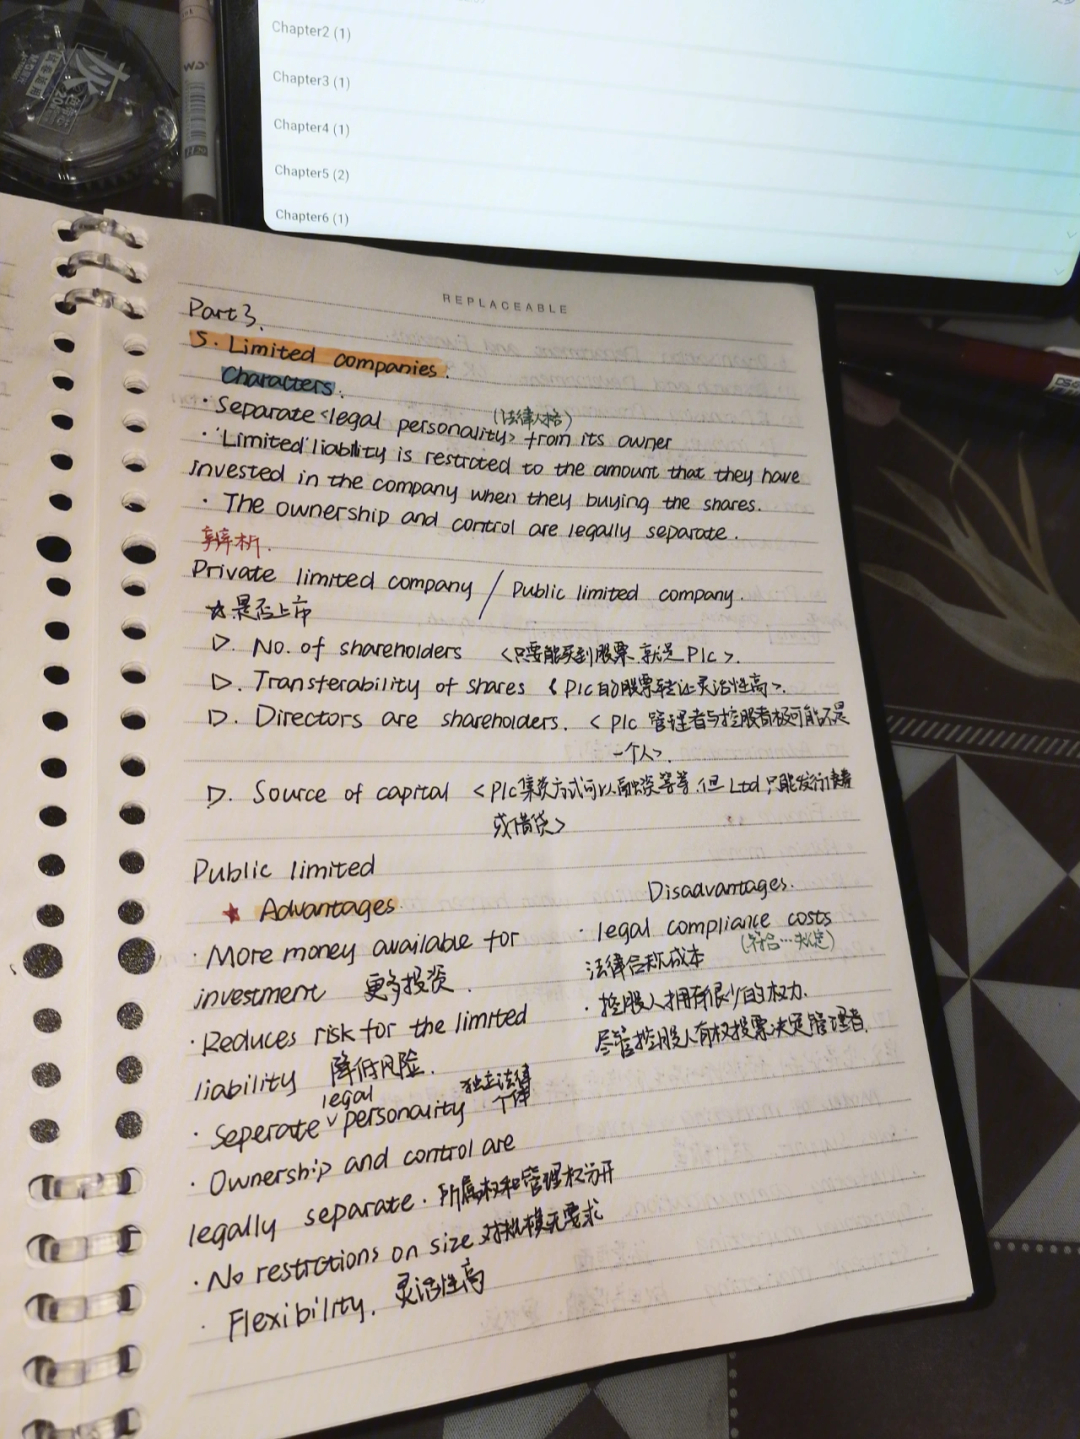 Chapter2 (1)
Chapter3 (1)
Chapter4 (1)
Chapter5 (2)
Chapter6 (1)
REPLACEABLE
Part 3.
5. Limited companies.
Characters.
· Separate <legal personality> from its owner
(法律人格)
· 'Limited' liability is restrcted to the amount that they have
invested in the company when they buying the shares.
· The ownership and control are legally separate.
辨析.
Private limited company / Public limited company.
☆是否上市
▷. No. of shareholders <只要能买到股票,就是Plc>.
▷. Transferability of shares <Plc的股票转让灵活性高>.
▷. Directors are shareholders. <Plc 管理者与控股者极可能不是
一个人>.
▷. Source of capital <Plc集资方式可以融资等等,但Ltd只能发行
或借贷>
Public limited
★ Advantages.
· More money available for
investment 更多投资.
· Reduces risk for the limited
liability 降低风险.
· Seperate legal personality. 独立法律
个体
· Ownership and control are
legally separate. 所属权和管理权分开
· No restrctions on size 对规模无要求
· Flexibility. 灵活性高
Disadvantages.
· legal compliance costs
(符合…规定)
法律合称成本
· 控股人拥有很少的权力.
尽管控股人有权投票决定管理者.